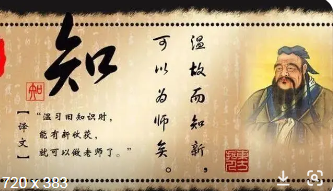 知
知
温故而知新,
可以为师矣。
【译文】
“温习旧知识时,
能有新收获,
就可以做老师了。”
720 x 383